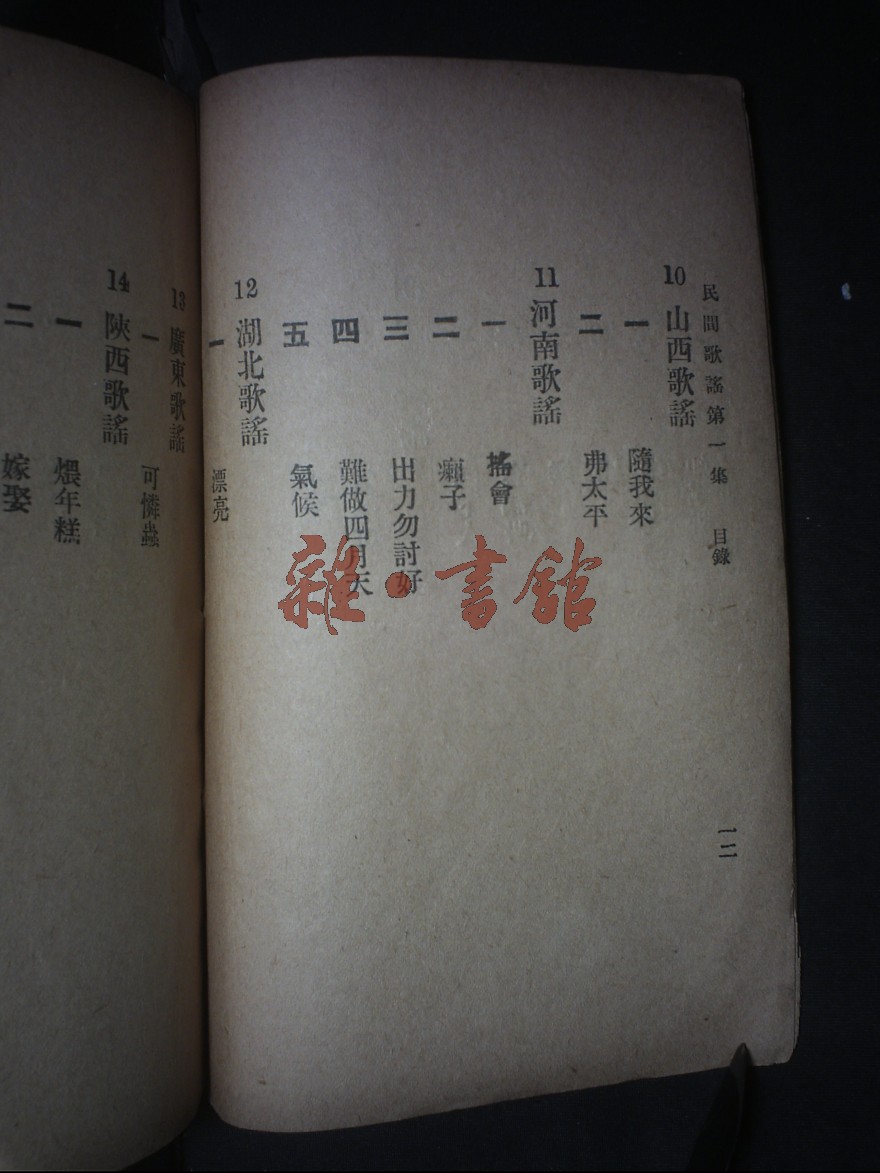 民間歌謠第一集 目錄
一二
10 山西歌謠
一 隨我來
二 弗太平
11 河南歌謠
一 搖會
二 癩子
三 出力勿討好
四 難做四月天
五 氣候
12 湖北歌謠
一 漂亮
13 廣東歌謠
一 可憐蟲
14 陝西歌謠
一 煨年糕
二 嫁娶
雜·書館